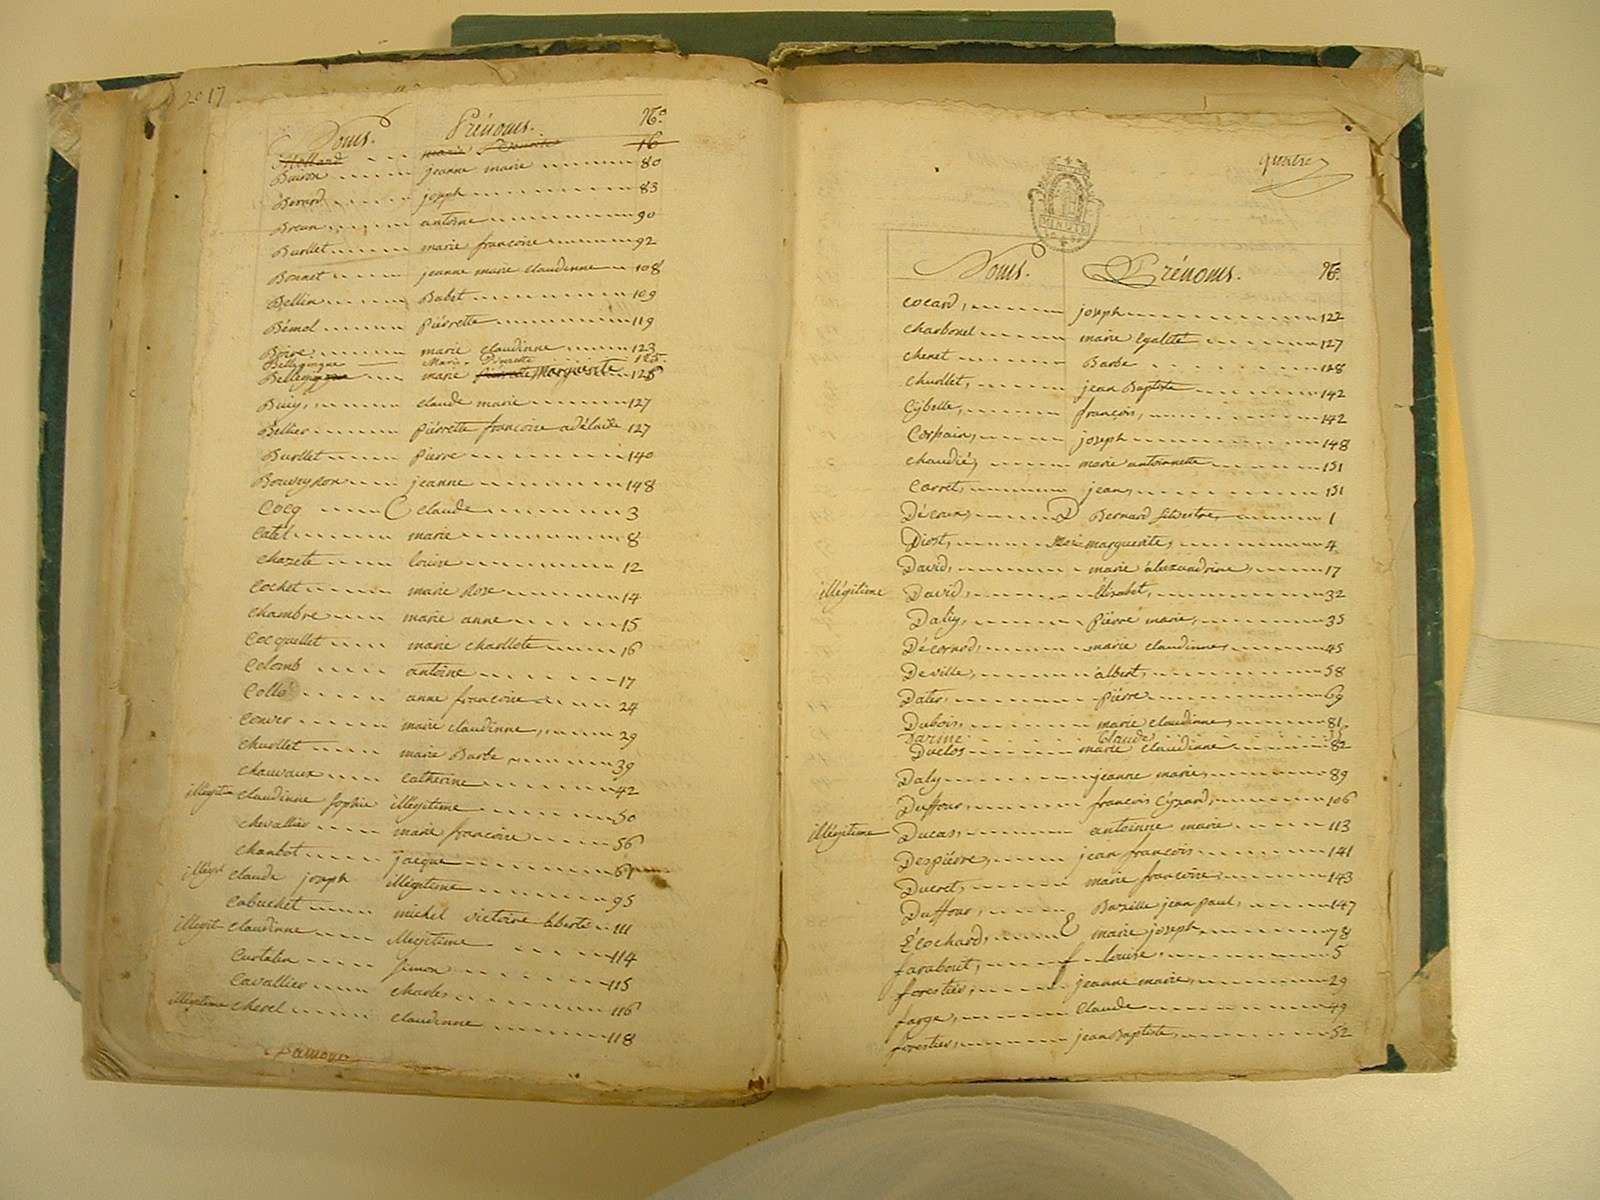 2017
Noms. Prénoms. No.
Mollard marie 16
Buiron jeanne marie 80
Berard joseph 83
Breun antoine 90
Burllet marie francoise 92
Bonnet jeanne marie claudinne 108
Bellin Babet 109
Bémol piérrette 119
Boire marie claudinne 123
Bellegingue Marie 125
marie Marguerite 126
Buiy, claude marie 127
Bellier piérrette francoise adélaide 127
Burllet pierre 140
Bouveyron jeanne 148
Cocq C claude 3
Catel marie 8
Chazete louise 12
Cochet marie Rose 14
Chambre marie anne 15
Cocquellet marie charllote 16
Colomb antoine 17
Collé anne francoise 24
Conver marie claudinne 29
Churllet marie Barbe 39
Chauvaux Catherine 42
illégitim claudinne Sophie illégitime 50
Chevallier marie francoise 56
Chanbot jacque 67
illégit claude joseph illégitime 95
Cabuchet michel victoire liberté 111
illégit claudinne illegitime 114
Curtalin Simon 115
Cavallier charles 116
illégitime cherel claudinne 118
quatre
MINUTE
Noms. Prénoms. No.
Cocard, joseph 122
Charbonel marie Egalité 127
Chenet Barbe 128
Churllet, jean Baptiste 142
Cybelle, françois, 142
Corpain, joseph 148
Chaudié, marie antoinnette 151
Carret, jean, 151
Décroux, D Bernard silvestre, 1
Diost, marguerite, 4
David, marie aléxandrine, 17
illégitime David, Elisabet, 32
Daly, piérre marie, 35
Décornod, marie claudinne, 45
Deville, albert, 58
Dater, piérre 69
Dubois, marie claudinne, 81
Darme Claude
Duclos marie claudinne 82
Daly jeanne marie, 89
Duffour, francois Cézard, 106
illégitime Ducas, antoinne marie 113
Despiérre, jean francois 141
Ducret, marie francoise 143
Duffour, Bazille jean paul, 147
Ecochard, E marie joseph 78
farabout, f louise, 5
forestier, jeanne marie, 29
farge, Claude 49
forestier, jean Baptiste, 52